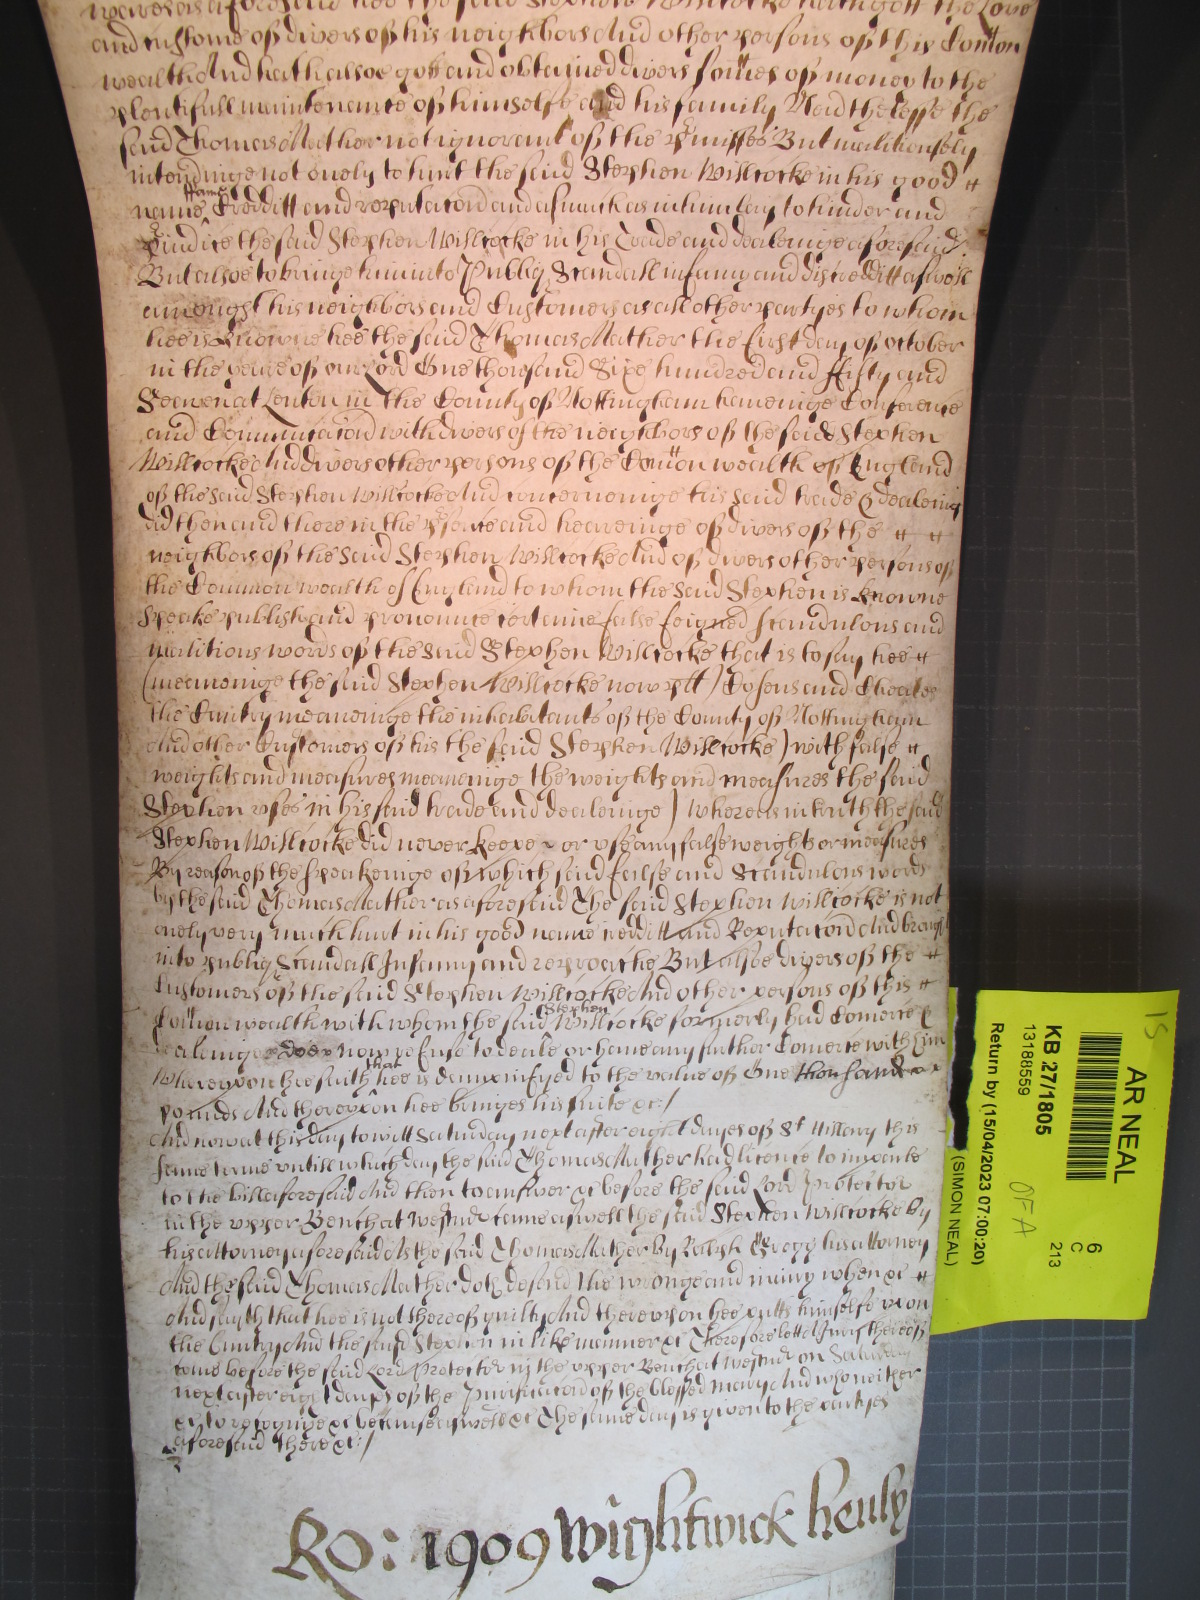 weares as aforesaid hee the said Stephen Willcocke hath gott the Love
and custome of divers of his neighbors And other persons of this Com̃on
wealth And hath alsoe gott and obtayned divers som̃es of money to the
plentifull maintenance of himselfe and his family Neverthelesse the
said Thomas Mather not ignorant of the p̃misses But malitiously
intendinge not onely to hurt the said Stephen Willcocke in his good #
name fame Creditt and reputac̃on and asmuch as in him lay to hinder and
p̃iudice the said Stephen Willcocke in his Trade and dealeinge aforesaid
But alsoe to bringe him into Publiq Scandall infamy and discredditt aswell
amongst his neighbors and Customers as all other partyes to whom
hee is knowne hee the said Thomas Mather the first day of october
in the yeare of our Lord One thousand Sixe hundred and fifty and
Seaven at Lenton in the County of Nottingham haveinge Conference
and Com̃unicac̃on with divers of the neighbors of the said Stephen
Willcocke And divers other persons of the Com̃on wealth of England
of the said Stephen Willcocke And concerneinge his said trade & dealeing
did then and there in the p̃sence and heareinge of divers of the # #
neighbors of the said Stephen Willcocke And of divers other persons of
the Common wealth of England to whom the said Stephen is knowne
Speake publish and pronounce certeine false feigned scandulous and
malitious words of the said Stephen Willcocke that is to say hee #
(meaneinge the said Stephen Willcocke now plt̃) Cosens and Cheates
the Cuntry meaneinge the inhabitants of the County of Nottingham
And other Customers of his the said Stephen Willcocke) with false #
weights and measures meaneinge the weights and measures the said
Stephen vses in his said trade and dealeinge) whereas in truth the said
Stephen Willcocke did never keepe or vse any false weights or measures
By reason of the speakeinge of which said false and Scandulous words
by the said Thomas Mather as aforesaid The said Stephen Willcocke is not
onely very much hurt in his good name creditt and Reputac̃on And brought
into publiq Scandall Infamy and reproache But alsoe divers of the #
Customers of the said Stephen Willcocke And other persons of this #
Com̃on wealth with whom the said Stephen Willcocke formerly had Comerce &
dealeinge doe now refuse to deale or have any further Comerce with him
Whereupon hee saith that hee is damnifyed to the value of One thousand
pounds And thereupon hee bringes his suite &c̃ /
And now at this day to witt Saturday next after eight dayes of St Hillary this
same terme untill which day the said Thomas Mather had licence to imparle
to the bill aforesaid And then to answer &c̃ before the said Lord Protector
in the upper Bench at Westm̃ came aswell the said Stephen Willcocke by
his attorney aforesaid As the said Thomas Mather By Ralph Gregg his attorney
And the said Thomas Mather doth defend the wronge and iniury when &c̃ #
And sayth that hee is not thereof guilty And thereupon hee putts himselfe upon
the Cuntry And the said Stephen in like manner &c̃ Therefore lett a Jury thereof
come before the said Lord Protector in the upper Bench at Westm̃ on Saturday
next after eight dayes of the Purificac̃on of the blessed mary And who neither
&c̃ to recognize &c̃ because aswell &c̃ The same day is given to the partyes
aforesaid there &c̃ /
Ro: 1909 Wightwick henly
15
AR NEAL
KB 27/1805
13188559
Return by (15/04/2023 07:00:20)
(SIMON NEAL)
6
C
213
OFA